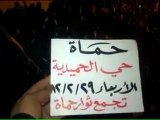 حماة
حي الحميدية
الأربعاء ١٢/٢/٢٩
تجمع ثوار حماة